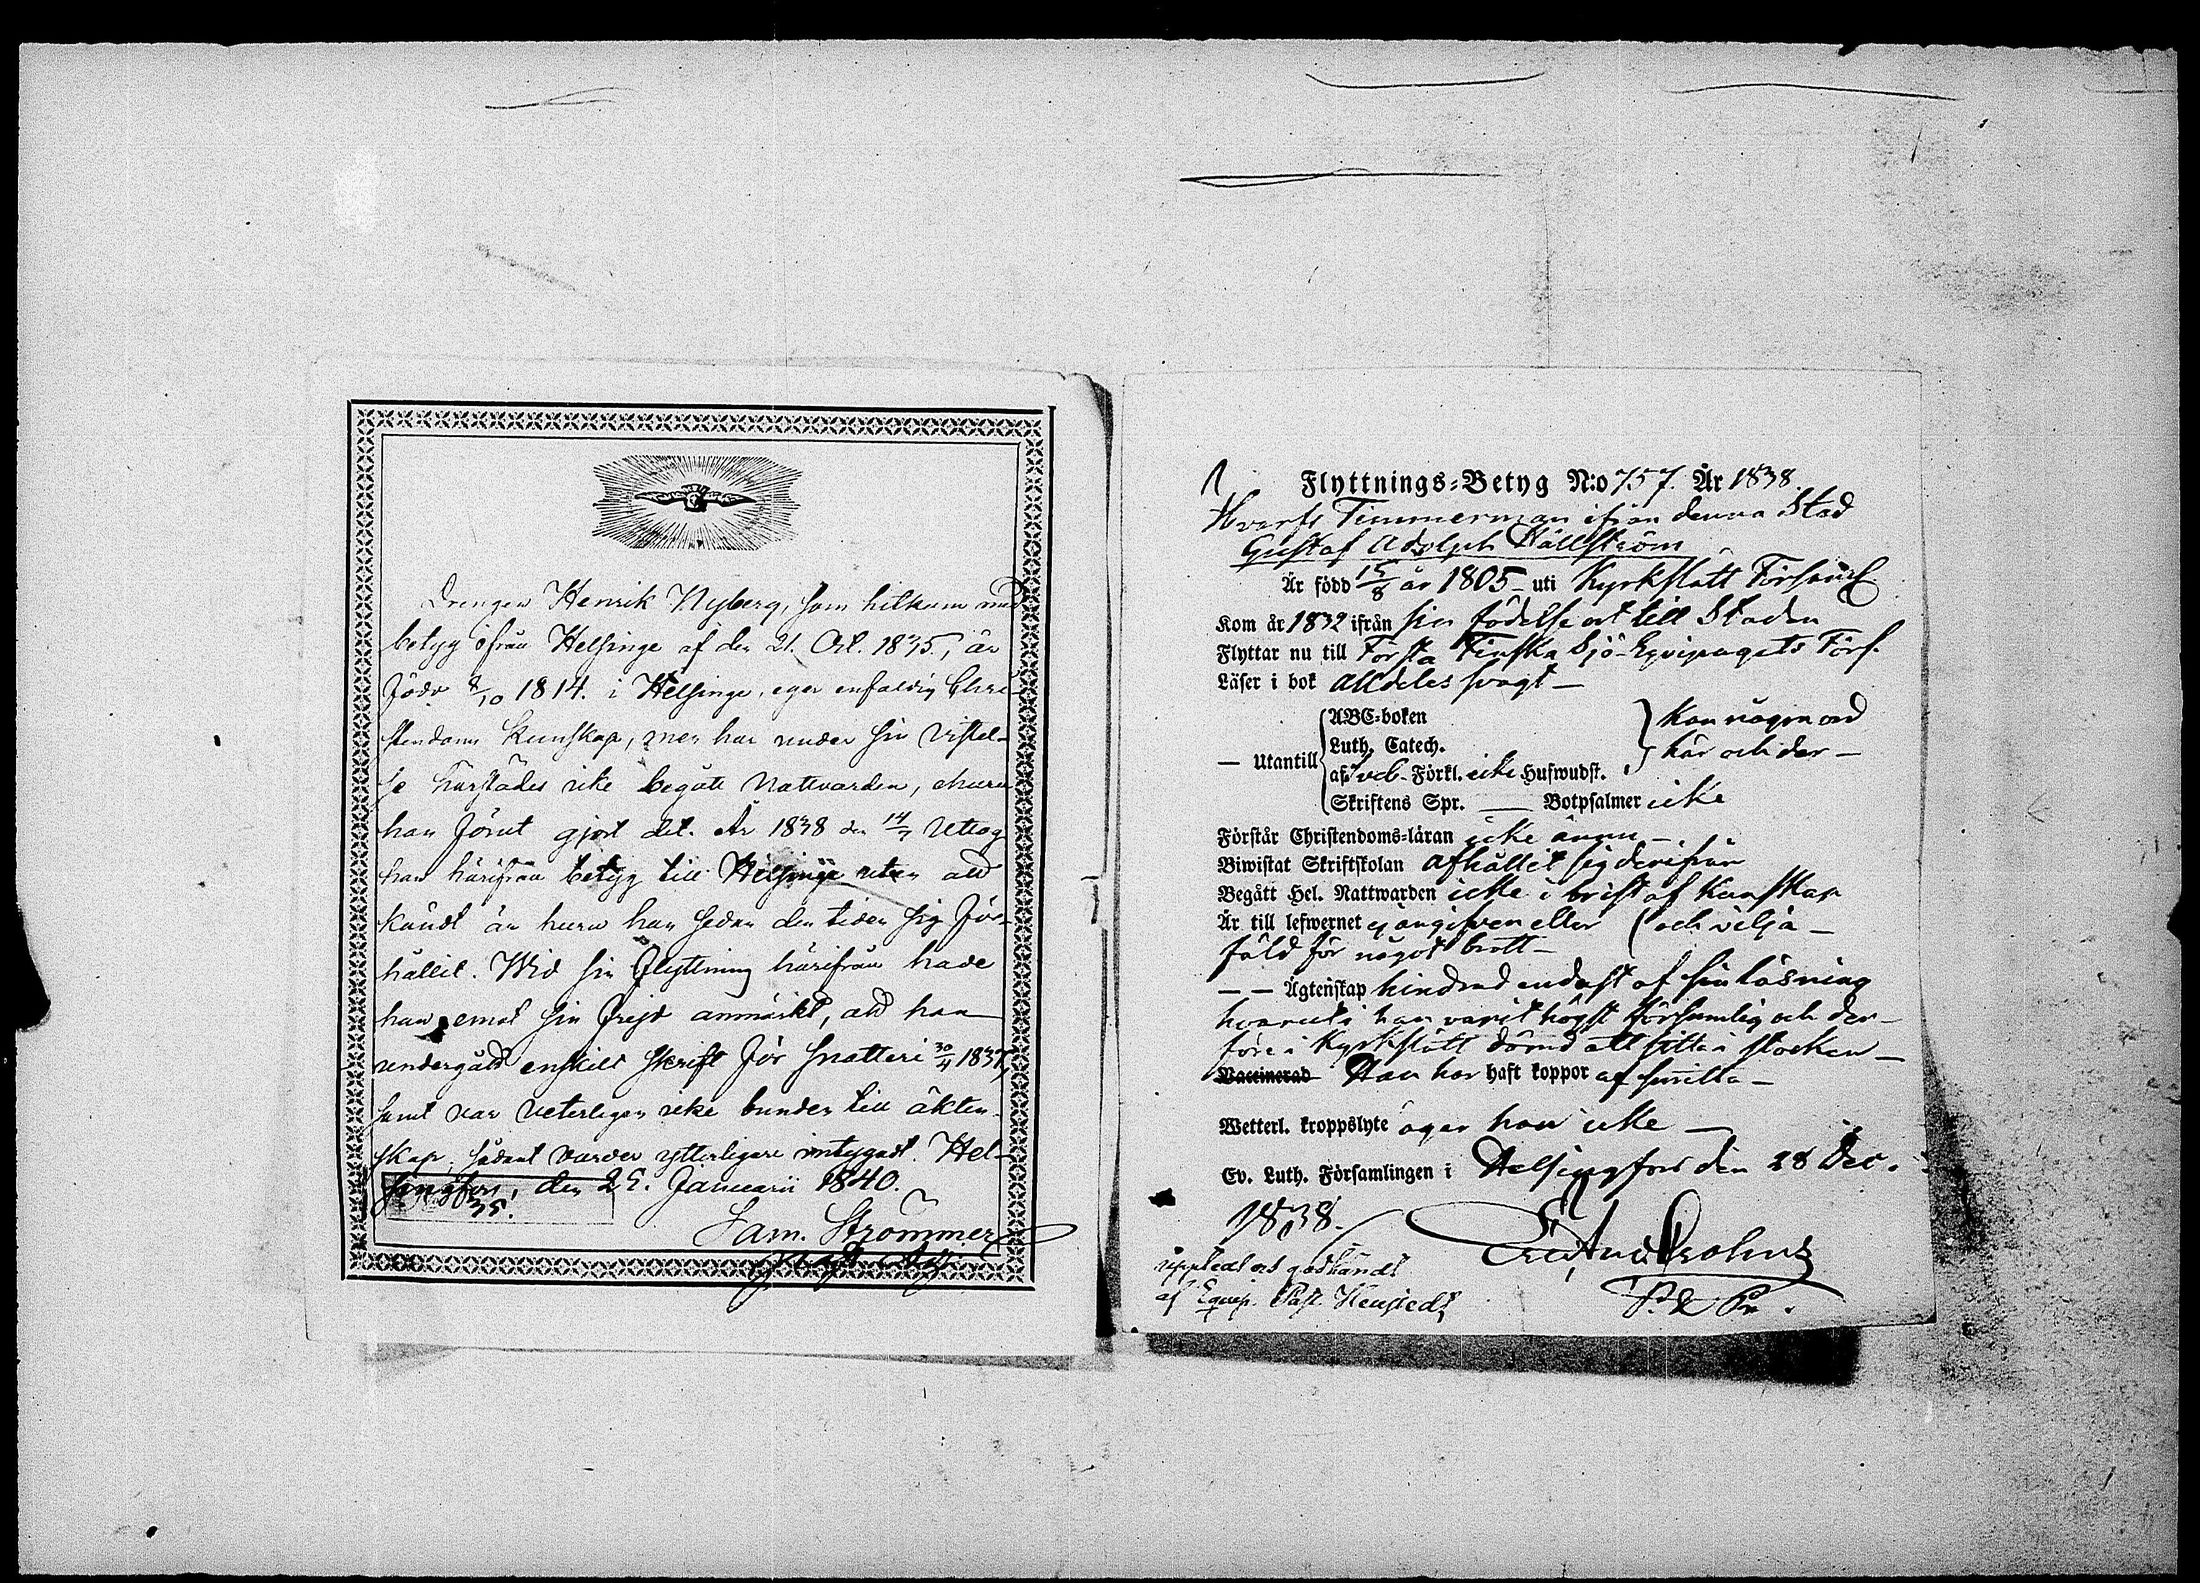 Drengen Henrik Nyberg, som hitkom med
betyg ifrån Helsinge af den 21. Oct. 1835, är
född 8/10 1814. i Helsinge, eger enfaldig Chri-
stendoms kunskap, men har under sin vistel-
se härstädes icke begått Nattvarden, ehuru
han förut gjort det. År 1838 den 14/7 uttog
han härifrån betyg till Helsinge utan att
kändt är huru han sedan den tiden sig för-
hållit. Wid sin flyttning härifrån hade
han emot sin frejd anmärkt, att han
undergått enskilt skrift för snatteri 30/4 1837,
samt var veterligen icke bunden till äkten-
skap, sådant varder ytterligare intygadt. Hel-
singfors, den 25. Januarii 1840.
35.
Sam. Strömmer
Flyttnings-Betyg N:o 757. År 1838.
Hvarfs Timmerman ifrån denna Stad
Gustaf Adolph Hällström
Är född 15/8 år 1805 uti Kyrkslätt Församl
Kom år 1832 ifrån sin födelse ort till Staden
Flyttar nu till Första Finska Sjö-Equipagets Förs.
Läser i bok alldeles svagt —
— Utantill ABC-boken
Luth. Catech.
af Sveb. Förkl. icke Hufwudst.
kan någon ord
här och der —
Skriftens Spr. — Botpsalmer icke
Förstår Christendoms-läran icke ännu —
Biwistat Skriftskolan afhållit sig derifrån
Begått Hel. Nattwarden icke i brist af kunskap
Är till lefwernet ej angifven eller ( och vilja —
fäld för något brott —
— — Ägtenskap hindrad endast af sin läsning
hvaruti han varit högst försumlig och der-
före i Kyrkslätt dömd att sitta i stocken —
Vaccinerad Han har haft koppor af smitta —
Wetterl. kroppslyte äger han icke —
Ev. Luth. Församlingen i Helsingfors den 28 Dec.
1838.
uppledt och godkändt
af Equip. Past.